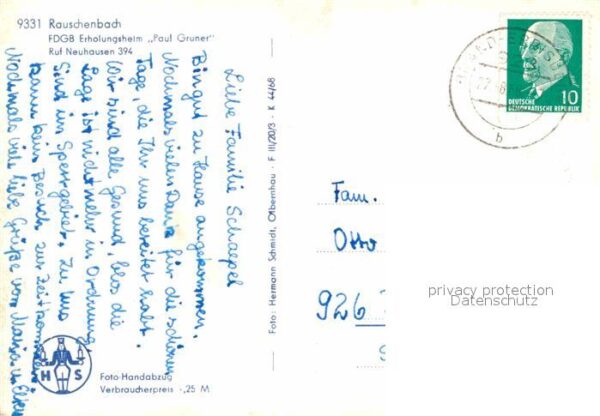 9331 Rauschenbach
FDGB Erholungsheim „Paul Gruner"
Ruf Neuhausen 394
Liebe Familie Schaepel
Bin gut zu Hause angekommen.
Nochmals vielen Dank für die schönen
Tage, die Ihr uns bereitet habt.
Wir sind alle Gesund, blos die
Lage ist nicht mehr in Ordnung
Sind im Sperrgebiet. Zu uns
kann kein Besuch zur Zeit kommen
Nochmals viele liebe Grüße von
Foto: Hermann Schmidt, Olbernhau · F III/20/3 · K 44/68
H S
Foto-Handabzug
Verbraucherpreis -,25 M
DEUTSCHE
DEMOKRATISCHE REPUBLIK
10
b
Fam.
Otto
926
privacy protection
Datenschutz